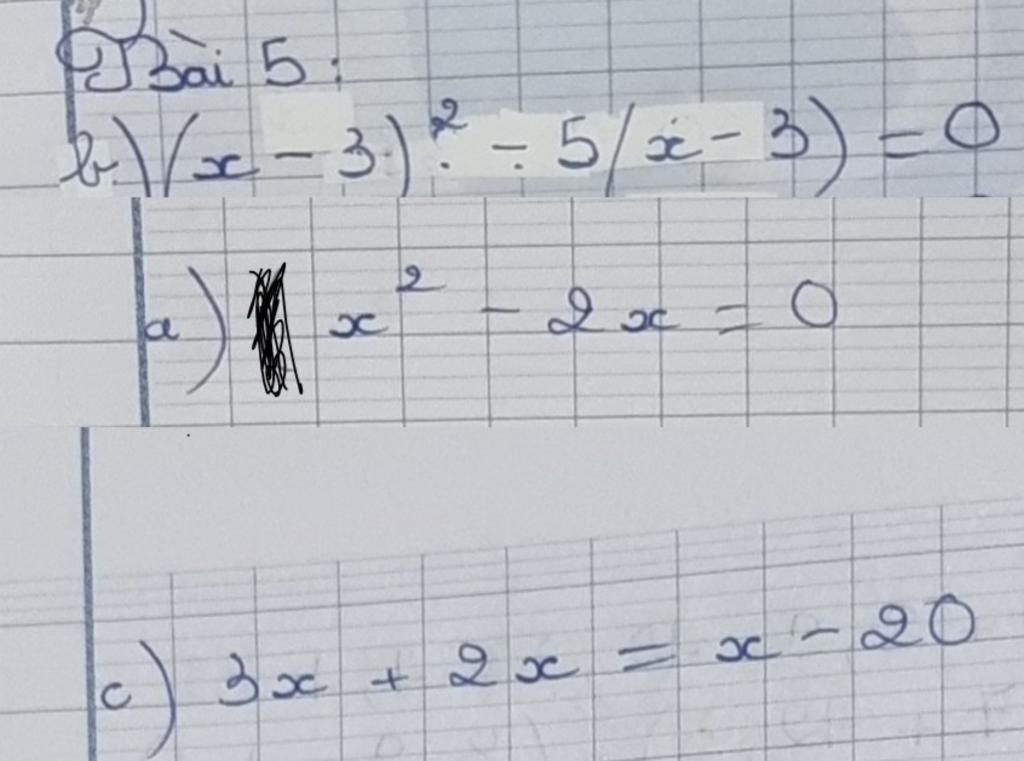 Bài 5:
b) (x - 3)² - 5(x - 3) = 0
a) x² - 2x = 0
c) 3x + 2x = x - 20